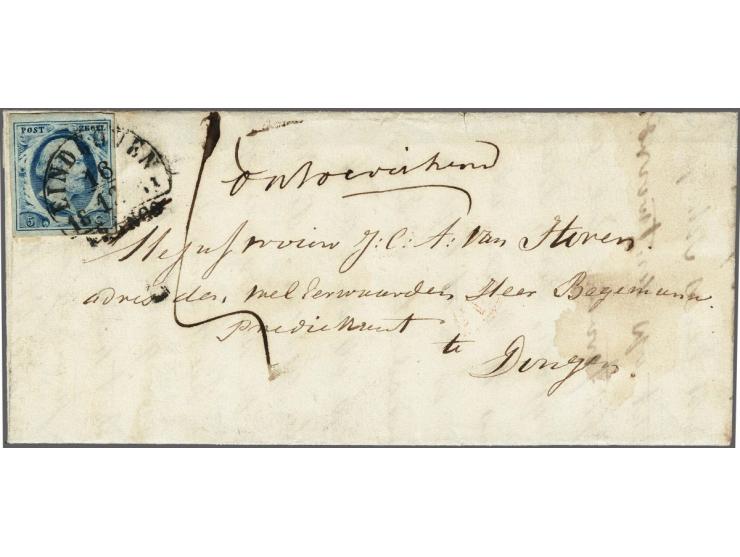 POST ZEGEL
5 C
EINDHOVEN
16
FRANCO
ontoereikend
Mejufvrouw J. C. A. van Haren.
adres den wel Eerwaarden Heer Begemann.
Predikant
te
Dongen.